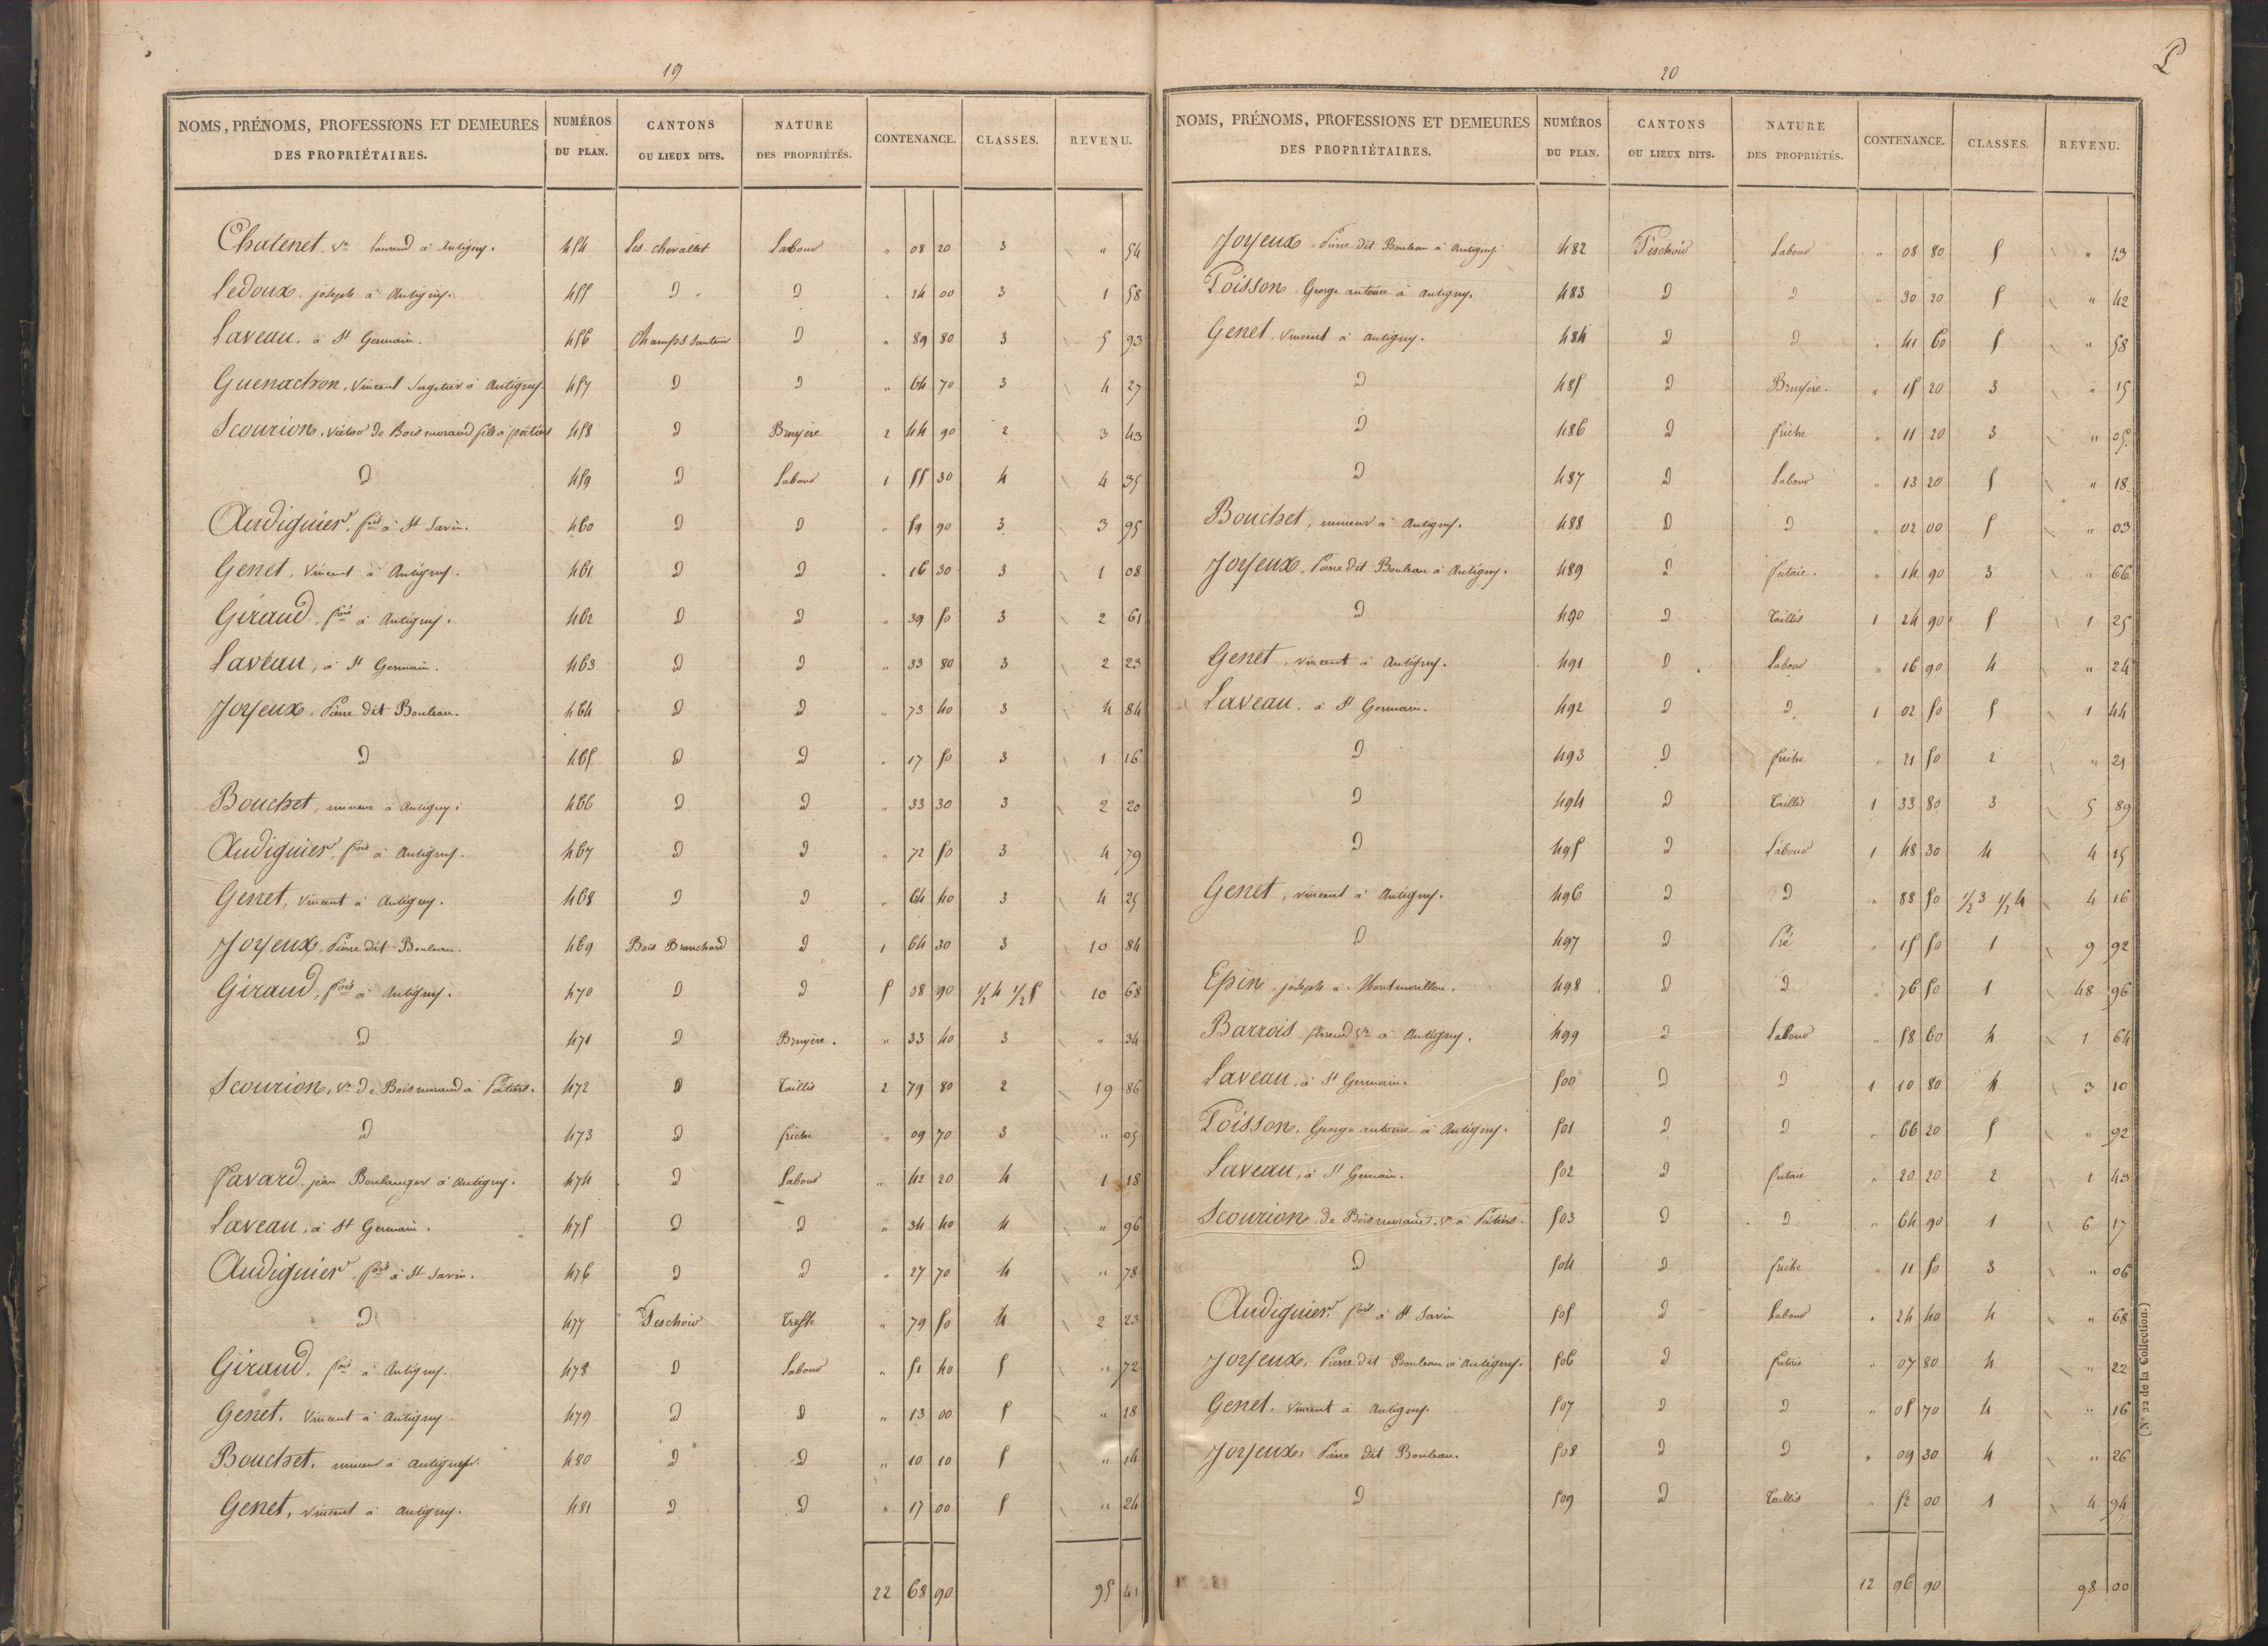 19
NOMS, PRÉNOMS, PROFESSIONS ET DEMEURES DES PROPRIÉTAIRES. NUMÉROS DU PLAN. CANTONS OU LIEUX DITS. NATURE DES PROPRIÉTÉS. CONTENANCE. CLASSES. REVENU.
Chatenet, Ve Laurend à Antigny. 454 Les Chevallet Labour " 08 20 3 " 54
Ledoux, joseph à Antigny. 455 D D " 24 00 3 1 58
Laveau, à St Germain. 456 Champs D " 89 80 3 5 93
Guenachon, Vincent Sergetier à Antigny 457 D D " 64 70 3 4 27
Scourion, Victor de Boismorand fils à poitiers 458 D Bruyère 2 44 90 2 3 43
D 459 D Labour 1 55 30 4 4 35
Audiguier, fois à St Savin. 460 D D " 59 90 3 3 95
Genet, Vincent à Antigny. 461 D D " 16 30 3 1 08
Giraud, fois à Antigny. 462 D D " 39 50 3 2 61
Laveau, à St Germain. 463 D D " 33 80 3 2 23
Joyeux, Pierre dit Bouleau. 464 D D " 73 40 3 4 84
D 465 D D " 17 50 3 1 16
Bouchet, mineur à Antigny. 466 D D " 33 30 3 2 20
Audiguier, fois à Antigny. 467 D D " 72 50 3 4 79
Genet, Vincent à Antigny. 468 D D " 64 40 3 4 25
Joyeux, Pierre dit Bouleau. 469 Bois Branchard D 1 64 30 3 10 84
Giraud, fois à Antigny. 470 D D 5 08 90 1/2 4 1/2 5 10 68
D 471 D Bruyère. " 33 40 3 " 34
Scourion, Ve de Boismorand à Poitiers. 472 D Taillis 2 79 80 2 19 86
D 473 D friche " 09 70 3 " 05
Favard, jean Boulanger à Antigny. 474 D Labour " 42 20 4 1 18
Laveau, à St Germain. 475 D D " 34 40 4 " 96
Audiguier, fois à St Savin. 476 D D " 27 70 4 " 78
D 477 Peschoir Treffle " 79 50 4 2 23
Giraud, fois à Antigny. 478 D Labour " 51 40 5 " 72
Genet, Vincent à Antigny. 479 D D " 13 00 5 " 18
Bouchet, mineur à Antigny. 480 D D " 10 10 5 " 14
Genet, Vincent à Antigny. 481 D D " 17 00 5 " 24
22 68 90 95 41
20
NOMS, PRÉNOMS, PROFESSIONS ET DEMEURES DES PROPRIÉTAIRES. NUMÉROS DU PLAN. CANTONS OU LIEUX DITS. NATURE DES PROPRIÉTÉS. CONTENANCE. CLASSES. REVENU.
Joyeux, Pierre dit Bouleau à Antigny 482 Peschoir Labour " 08 80 5 " 13
Poisson, George antoine à Antigny. 483 D D " 30 20 5 " 42
Genet, Vincent à Antigny. 484 D D " 41 60 5 " 58
D 485 D Bruyère. " 15 20 3 " 15
D 486 D friche " 11 20 3 " 05
D 487 D Labour " 13 20 5 " 18
Bouchet, mineur à Antigny. 488 D D " 02 00 5 " 03
Joyeux, Pierre dit Bouleau à Antigny. 489 D futaie. " 14 90 3 " 66
D 490 D Taillis 1 24 90 5 1 25
Genet, Vincent à Antigny. 491 D Labour " 16 90 4 " 24
Laveau, à St Germain. 492 D D 1 02 50 5 1 44
D 493 D friche " 21 50 2 " 21
D 494 D Taillis 1 33 80 3 5 89
D 495 D Labour 1 48 30 4 4 15
Genet, Vincent à Antigny. 496 D D " 88 50 1/2 3 1/2 4 4 16
D 497 D Pré " 15 50 1 9 92
Epin, joseph à Montmorillon. 498 D D " 76 50 1 48 96
Barrois, Ve à Antigny. 499 D Labour " 58 60 4 1 64
Laveau, à St Germain. 500 D D 1 10 80 4 3 10
Poisson, George antoine à Antigny. 501 D D " 66 20 5 " 92
Laveau, à St Germain. 502 D futaie " 20 20 2 1 43
Scourion de Boismorand, Ve à Poitiers. 503 D D " 64 90 1 6 17
D 504 D friche " 11 50 3 " 06
Audiguier, fois à St Savin 505 D Labour " 24 40 4 " 68
Joyeux, Pierre dit Bouleau à Antigny. 506 D futaie " 07 80 4 " 22
Genet, Vincent à Antigny. 507 D D " 05 70 4 " 16
Joyeux, Pierre dit Bouleau. 508 D D " 09 30 4 " 26
D 509 D Taillis " 52 00 1 4 94
12 96 90 98 00
(N° 22 de la Collection.)